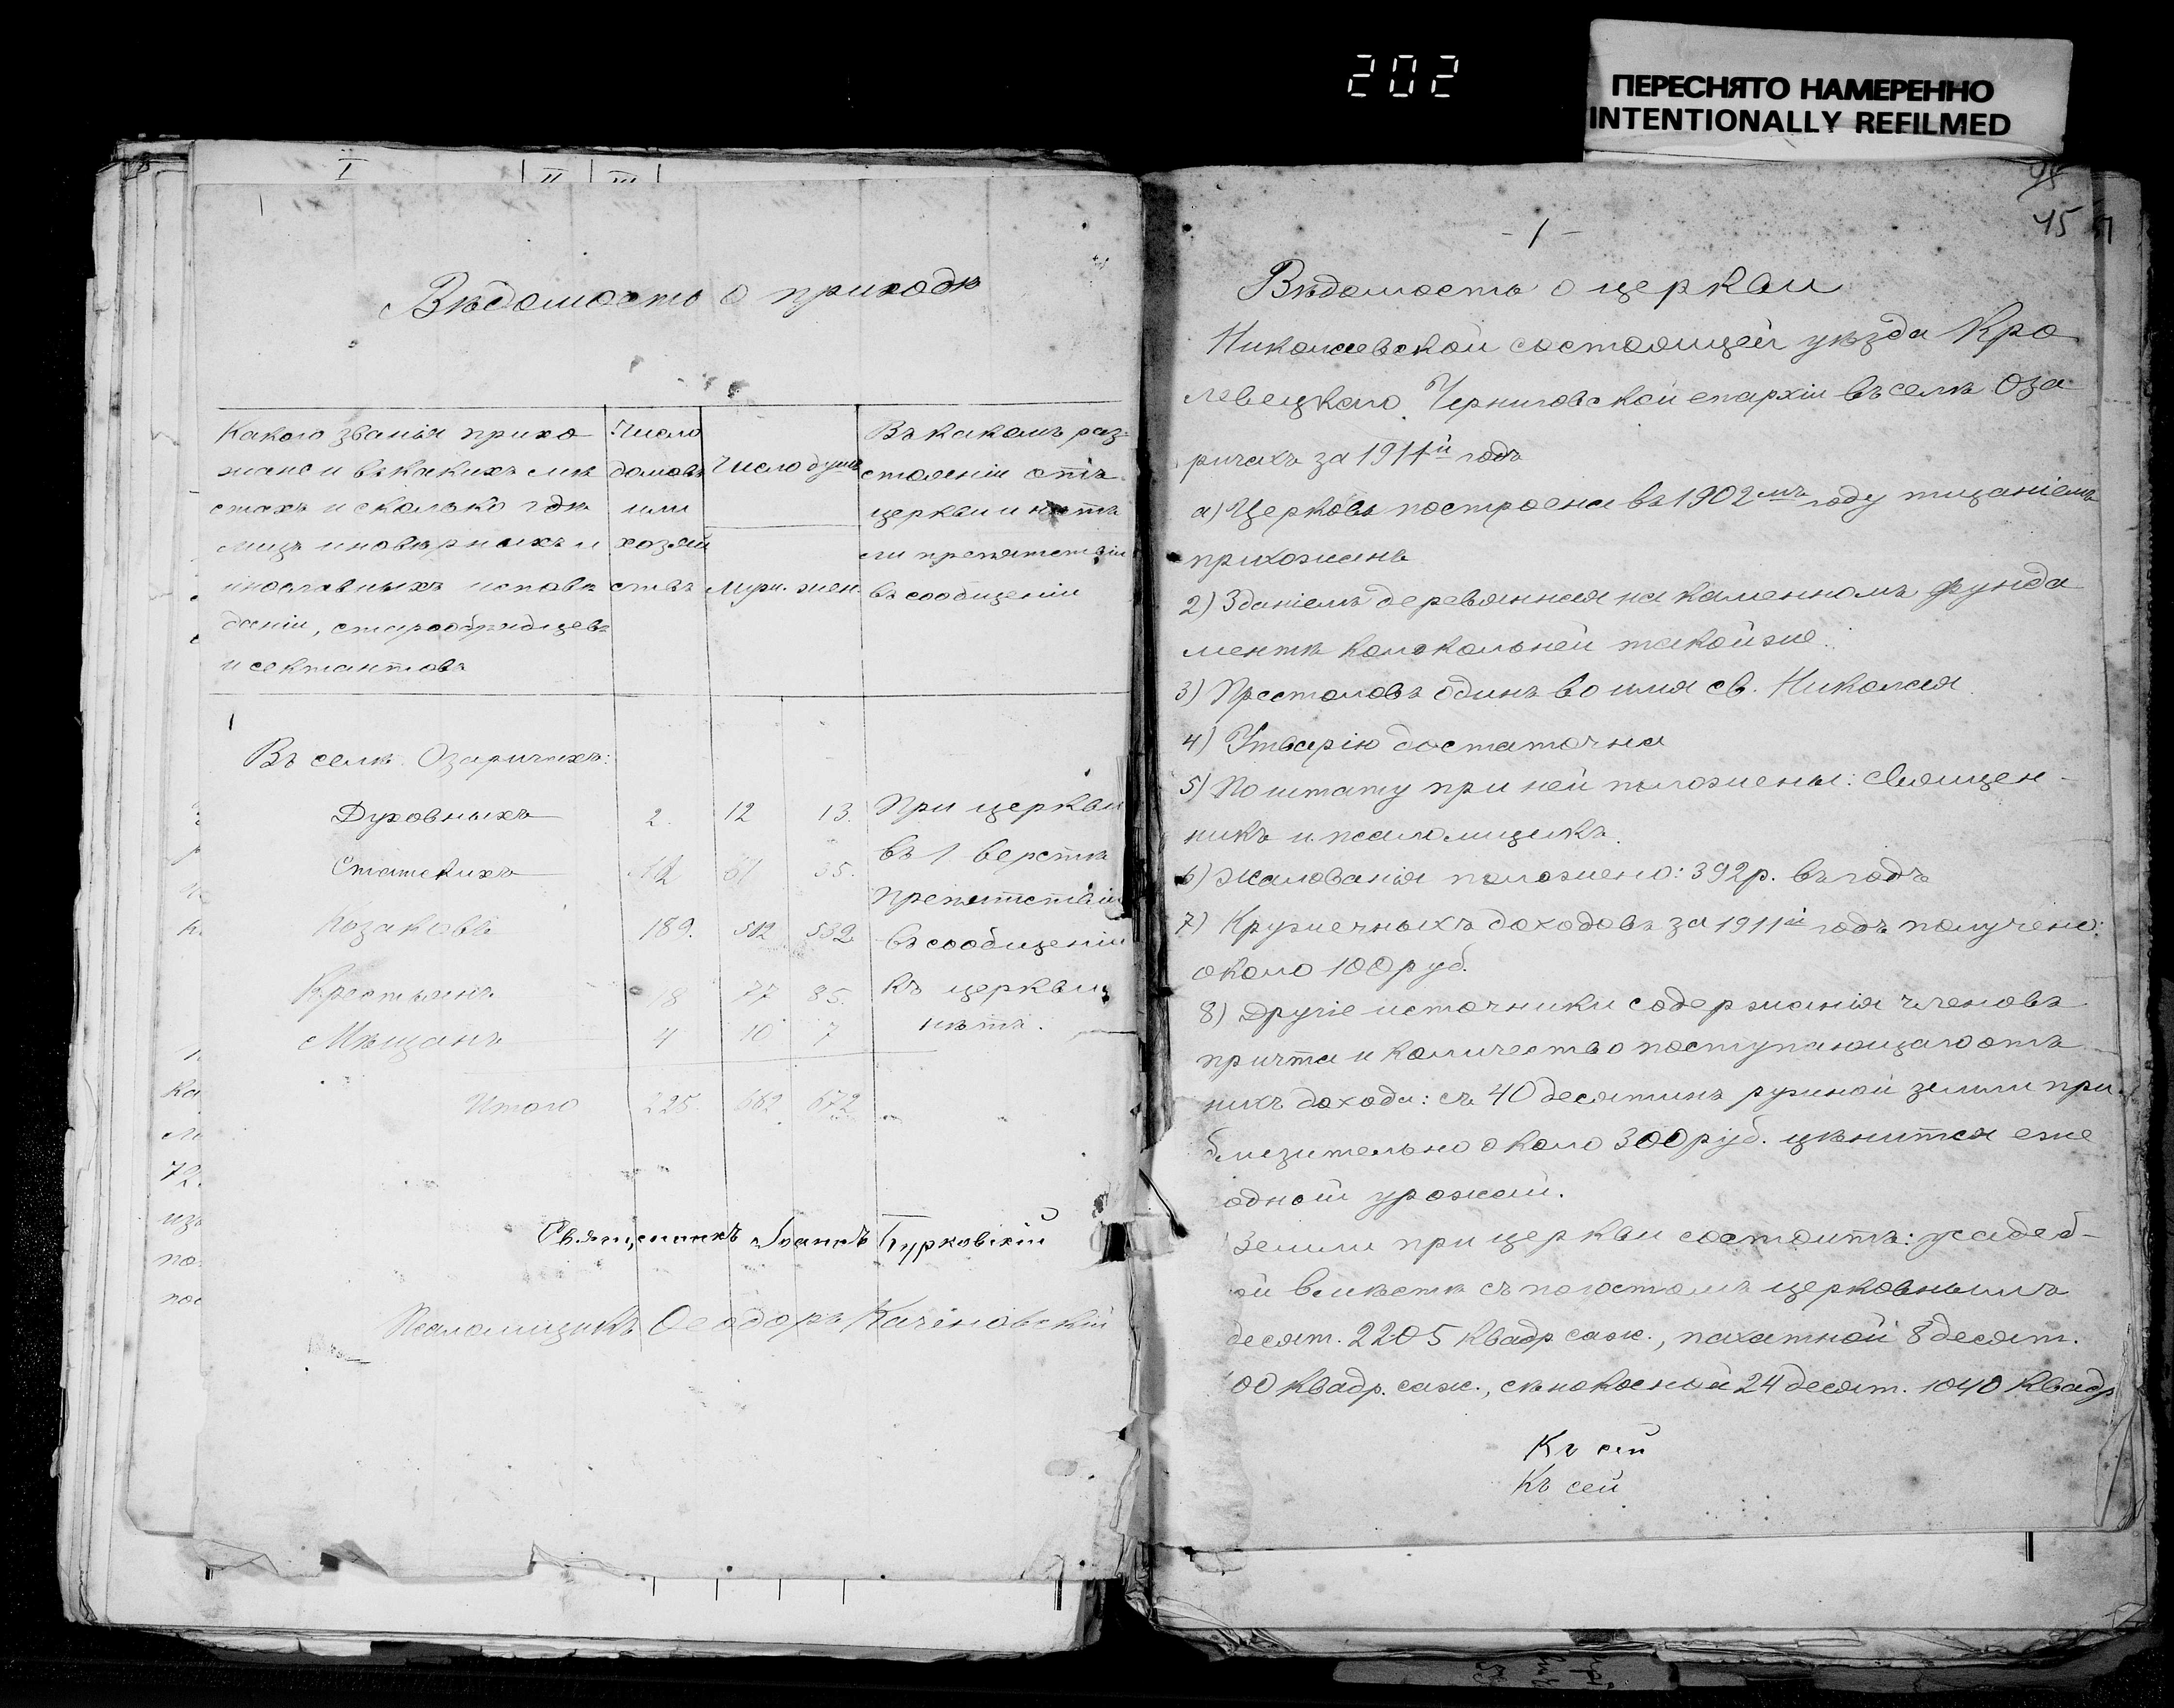 202
ПЕРЕСНЯТО НАМЕРЕННО
INTENTIONALLY REFILMED
I II III
Вѣдомость о приходѣ
Какого званія прихо
жане и въ какихъ мѣ
стахъ и сколько гдѣ
лицъ иновѣрныхъ и
инославныхъ исповѣ
даній, старообрядцевъ
и сектантовъ
Число
домовъ
или
хозяй
ствъ
Число душъ
Муж. жен.
Въ какомъ раз-
стояніи отъ
церкви и нѣтъ
ли препятствій
въ сообщеніи
Въ селѣ Озаричахъ:
Духовныхъ 2. 12 13. При церкви
Статскихъ 12 61 35. въ 1 верстѣ
препятствій
Козаковъ 189. 512 532 въ сообщеніи
Крестьянъ 18 77 85. къ церкви
Мѣщанъ 4 10 7 нѣтъ.
Итого 225 682 672
Священникъ Іоаннъ Бурковскій
Псаломщикъ Ѳеодоръ Качановскій
45
- 1 -
Вѣдомость о церкви
Николаевской состоящей уѣзда Кро
левецкаго Черниговской епархіи въ селѣ Оза
ричахъ за 1911й годъ
а) Церковь построена въ 1902мъ году тщаніемъ
прихожанъ
2) Зданіемъ деревянная на каменномъ фунда
ментѣ колокольней такой же.
3) Престоловъ одинъ во имя св. Николая
4) Утварію достаточна
5) По штату при ней положены: Священ-
никъ и псаломщикъ.
6) Жалованія положено: 392 р. въ годъ
7) Кружечныхъ доходовъ за 1911й годъ получено:
около 100 руб.
8) Другіе источники содержанія членовъ
причта и количество поступающаго отъ
нихъ дохода: съ 40 десятинъ ружной земли при
близительно около 300 руб. цѣнится еже
одной урожай.
Земли при церкви состоитъ: усадеб-
ой вмѣстѣ съ погостомъ церковнымъ
десят. 2205 квадр саж., пахатной 8 десят.
00 квадр. саж., сѣнокосной 24 десят. 1040 квадр
Къ сей
Къ сей